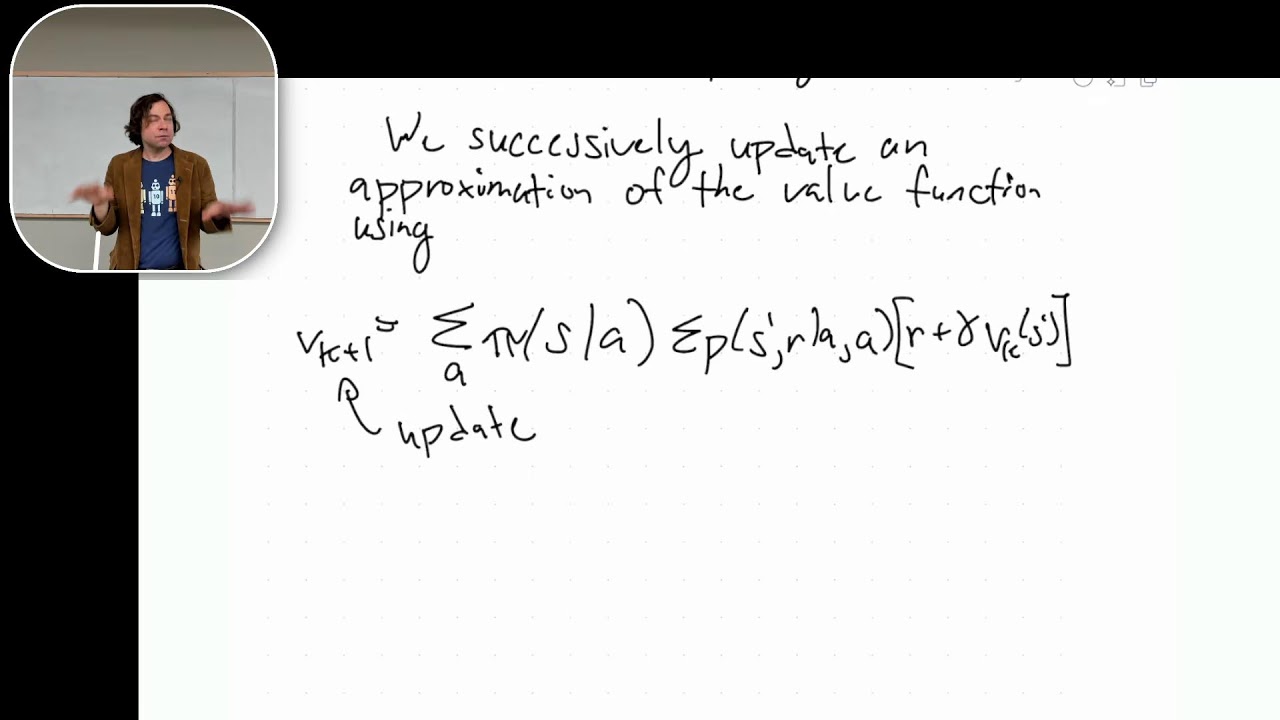 We successively update an
approximation of the value function
using
v_{k+1} = Σ_a π(s|a) Σ p(s',r|a,a)[r + γ v_k(s')]
update